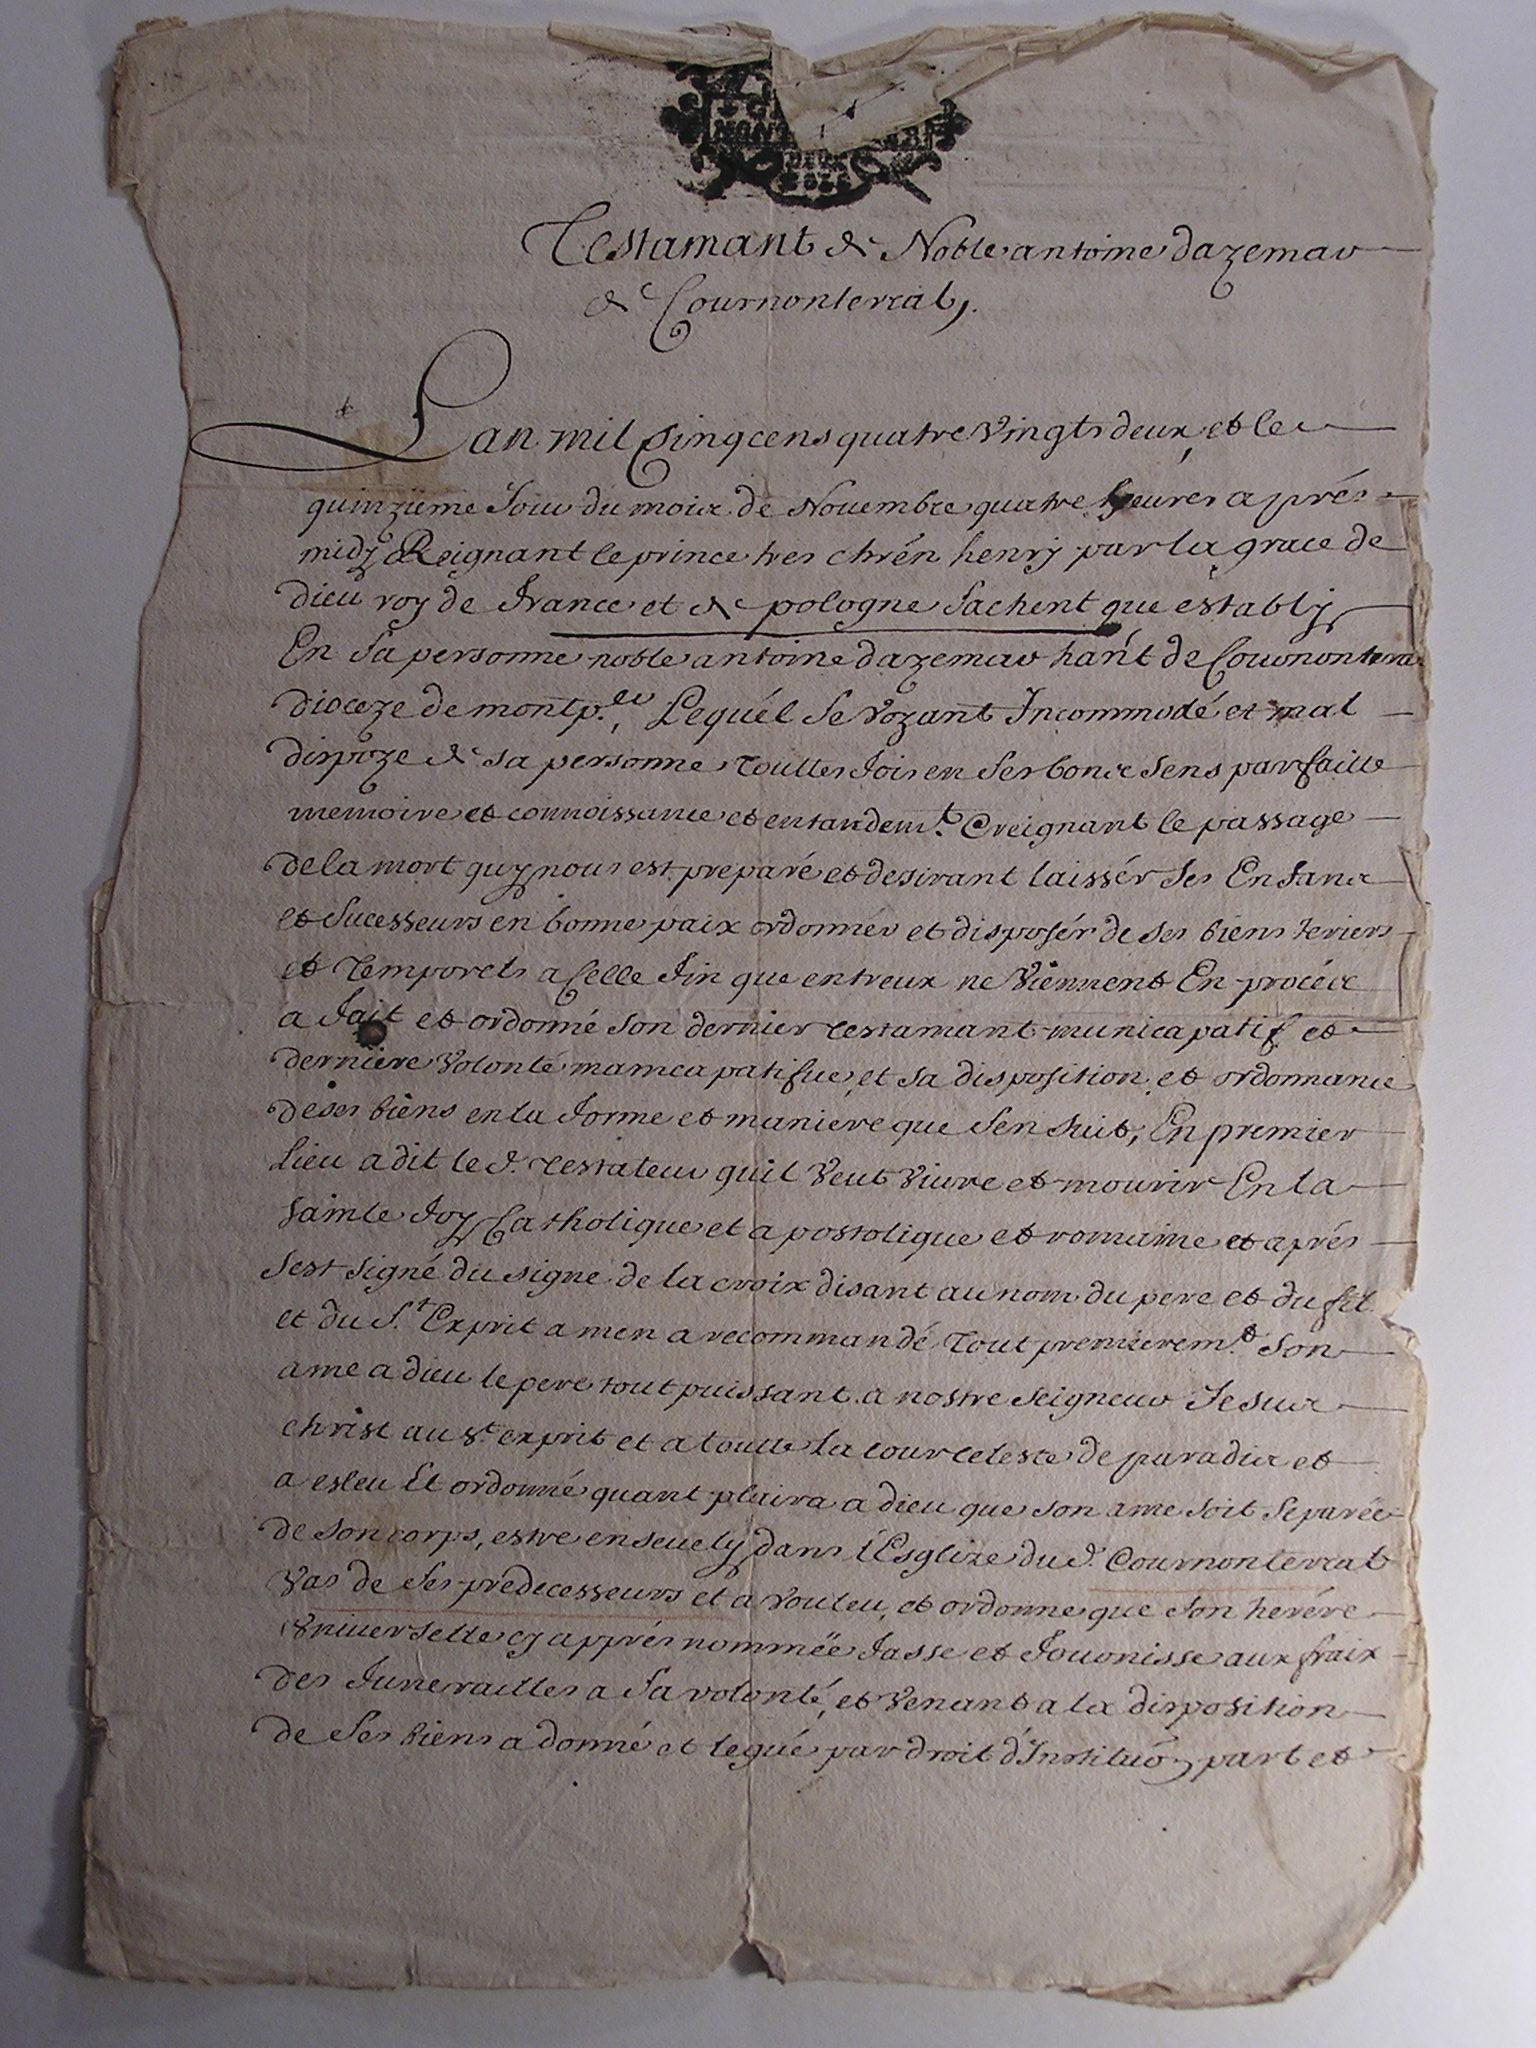 G
MONT
DEUX
SOLS
Testamant de Noble antoine dazemar
de Cournonterral,
Lan mil Cinq cens quatre vingts deux et le
quinzieme Jour du mois de Novembre quatre heures aprés
midy Reignant le prince tres chrén henry par la grace de
dieu roy de france et de pologne sachent que establÿ
En sa personne noble antoine dazemar hant de Cournonterra
dioceze de montp.er, Lequél se voyant Incommodé et mal
dispoze de sa personne touttes fois en ses bons sens parfaitte
memoire et connoissance et entandem.t Creignant le passage
de la mort quy nous est preparé et desirant laissér ses Enfans
et sucesseurs en bonne paix ordonnér et disposér de ses biens teriens
et temporels a celle fin que entreux ne viennent En procés
a fait et ordonné son dernier testamant municapatif et
derniere volonté mamcapatifue, et sa disposition et ordonnance
de ses biens en la forme et maniere que sen suit, En premier
Lieu a dit le d. testateur quil veut viure et mourir En la
sainte foy Catholique et apostolique et romaine et aprés
sest signé du signe de la croix disant au nom du pere et du fil
et du S.t Exprit amen a recommandé tout premierem.t son
ame a dieu le pere tout puissant a nostre seigneur Jesus
christ au s.t exprit et a toutte la cour celeste de paradis et
a esleu Et ordonné quant plaira a dieu que son ame soit separée
de son corps, estre enseuely dans l'Esglize du d. Cournonterral
vas de ses predecesseurs et a vouleu, et ordonne que son herére
vniuerselle cy apprés nommëe fasse et fournisse aux fraix
des funerailles a sa volonté, et venant a la disposition
de ses biens a donné et legué par droit d'Instituon, part et